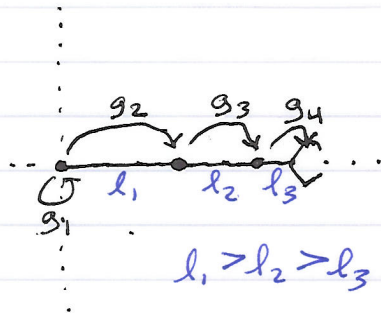 g₂ g₃ g₄
l₁ l₂ l₃
g₁
l₁ > l₂ > l₃